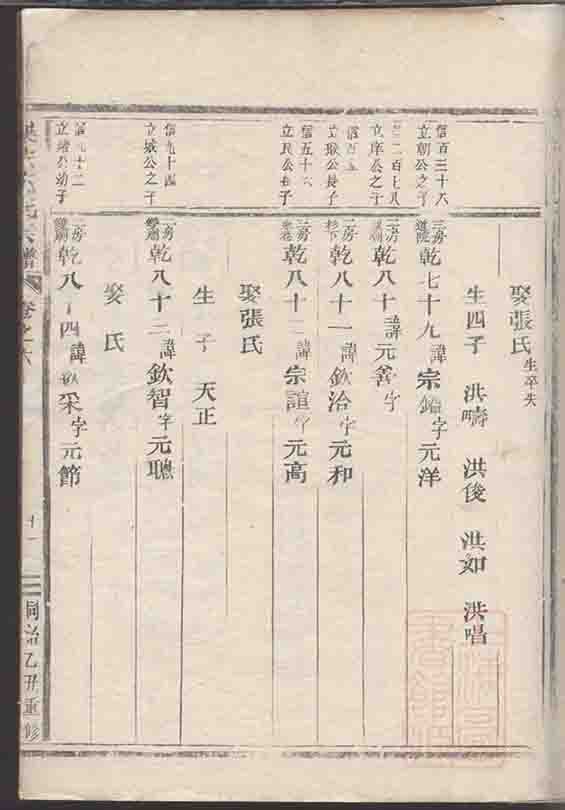 娶張氏 生卒失
生四子 洪疇 洪俊 洪如 洪唱
信百三十六
立朝公之子
三房乾七十九諱宗鎰字元洋
二百七八
立庠公之子
三房乾八十諱元善字
立琡公長子
二房乾八十一諱欽洽字元和
信五十六
立民公長子
乾八十二諱宗誼字元高
娶張氏
生子 天正
信九十四
立城公之子
二房乾八十三諱欽智字元聰
娶 氏
信九十二
立靖公幼子
二房乾八十四諱欽采字元節
譜 卷之六
十一
同治乙丑重修